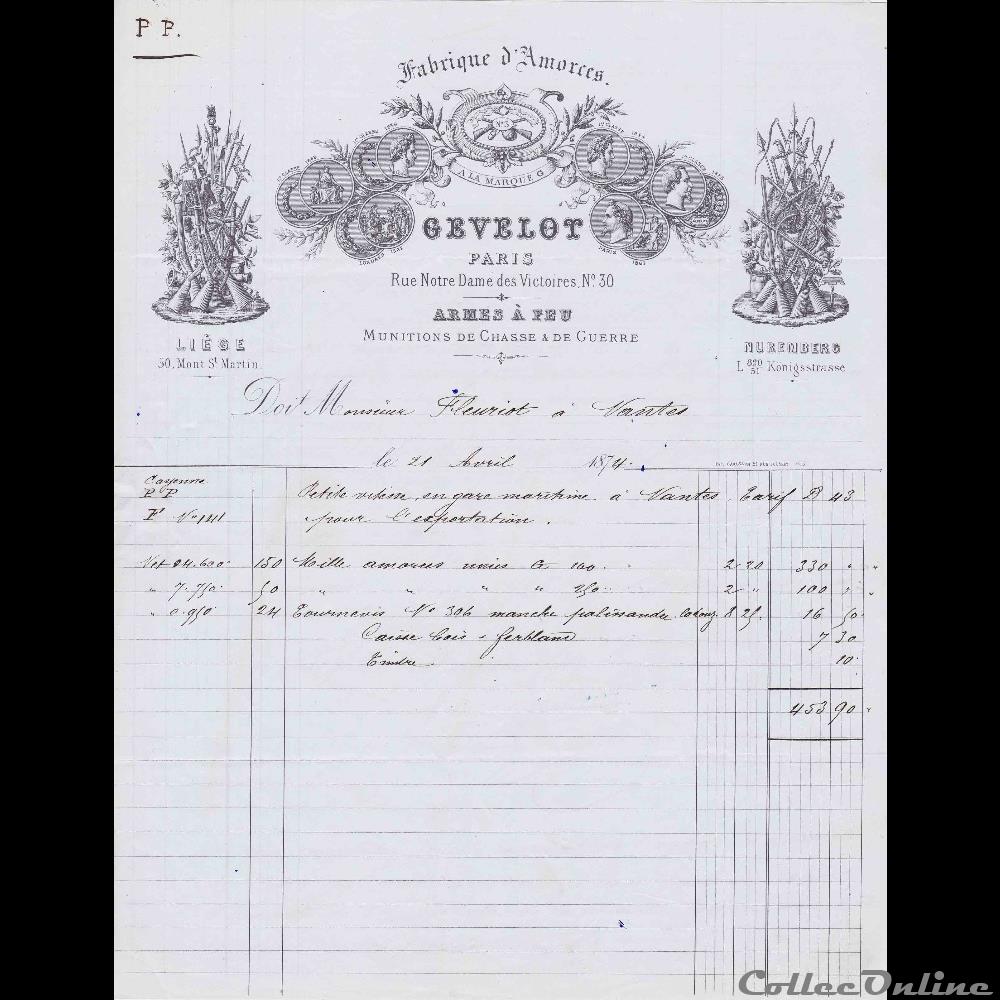 P P.
Fabrique d'Amorces.
A LA MARQUE G
GEVELOT
PARIS
Rue Notre Dame des Victoires, No. 30
ARMES À FEU
MUNITIONS DE CHASSE & DE GUERRE
LIÉGE
30, Mont St. Martin.
NUREMBERG
L 820/51 Königsstrasse
Doit Monsieur Fleuriot à Nantes
le 21 Avril 1874.
Cayenne
P P Petite vitesse, en gare maritime à Nantes Tarif D 43
No 141 pour l'exportation.
Net 24.600 150 Mille amorces unies G 100 2 20 330 " "
" 7.750 50 " " " " 250 2 " 100 " "
" 0.950 24 Tournevis No 396 manche palissandre 8 25 16 50
Caisse bois & ferblanc 7 30
Timbre 10
453 90 "
CollecOnline